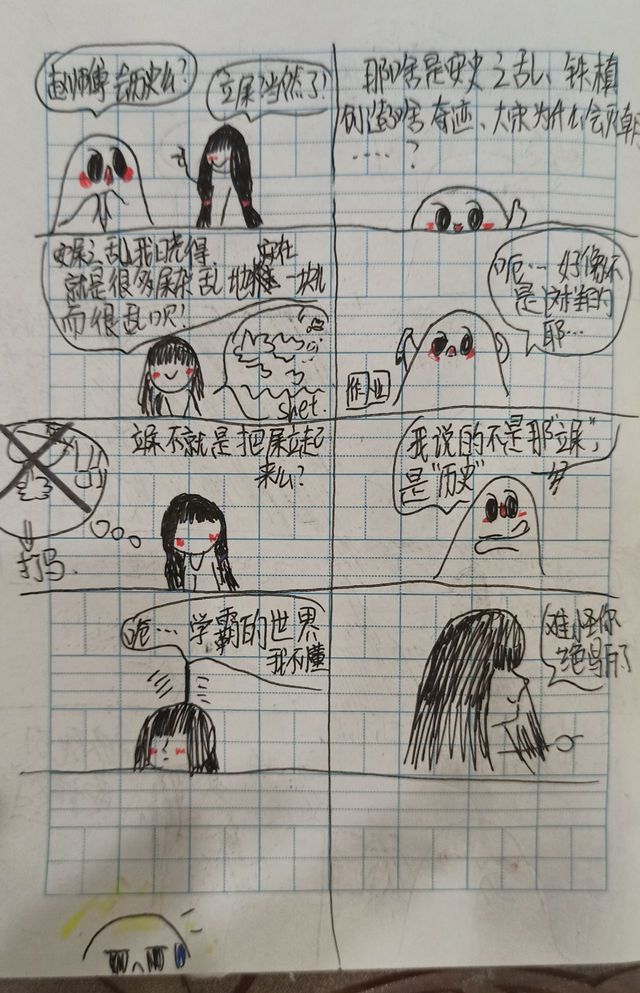 赵师傅会历史么?
立屎?当然了!
那啥是安史之乱、铁植
创造啥奇迹、大宋为什么会灭朝
....?
安屎之乱我晓得,
就是很多屎杂乱地安在一块儿
而很乱呗!
shet.
呃…好像不
是这样的
耶…
作业
立屎不就是把屎立起
来么?
打马.
我说的不是那“立屎”,
是“历史”
呃…学霸的世界
我不懂
难怪你
了